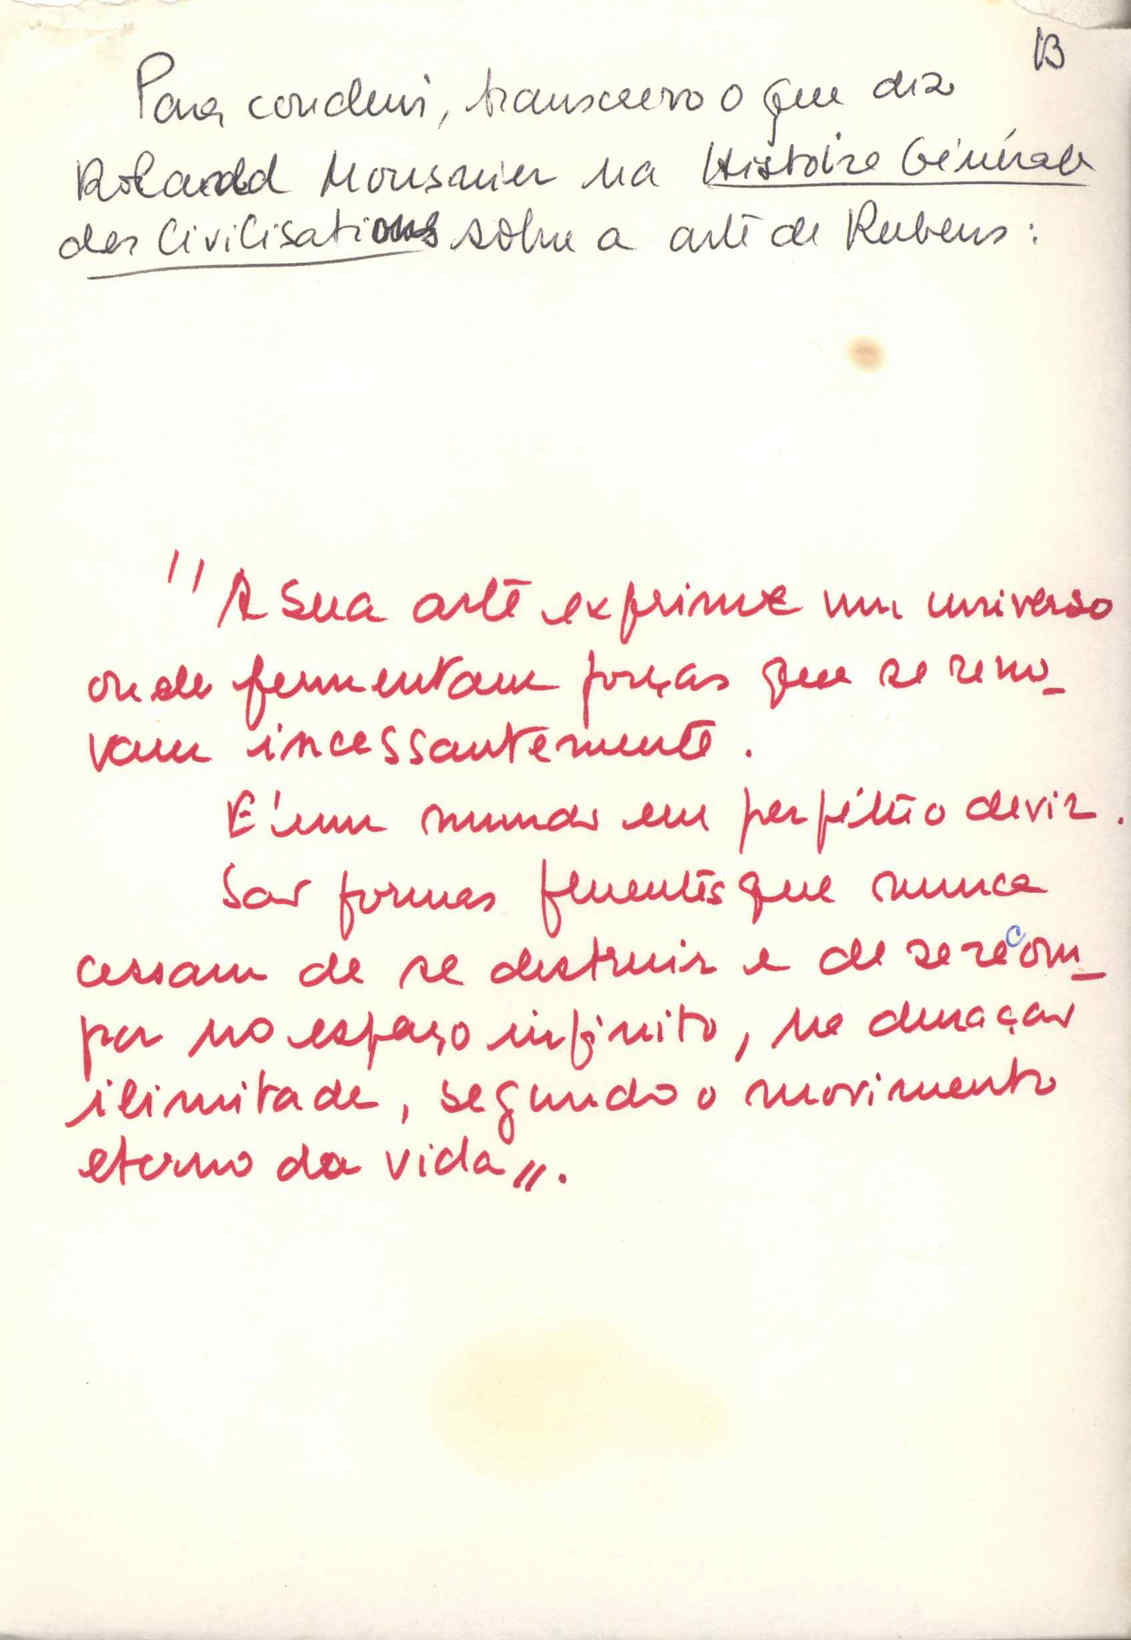 13
Para concluir, transcrevo o que diz
Roland Mousnier na Histoire Générale
des Civilisations sobre a arte de Rubens:
"A sua arte exprime um universo
onde fermentam forças que se reno-
vam incessantemente.
É um mundo em perpétuo devir.
São formas frementes que nunca
cessam de se destruir e de se recom-
por no espaço infinito, na duração
ilimitada, segundo o movimento
eterno da vida".